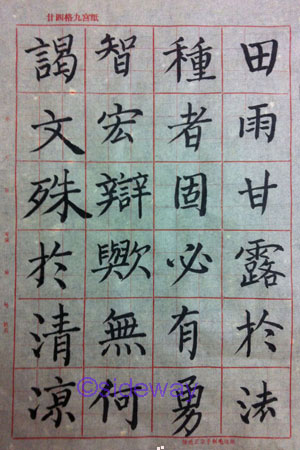 廿四格九宮紙
田雨甘露於法
種者固必有勇
智宏辯歟無何
謁文殊於清涼
©sideway